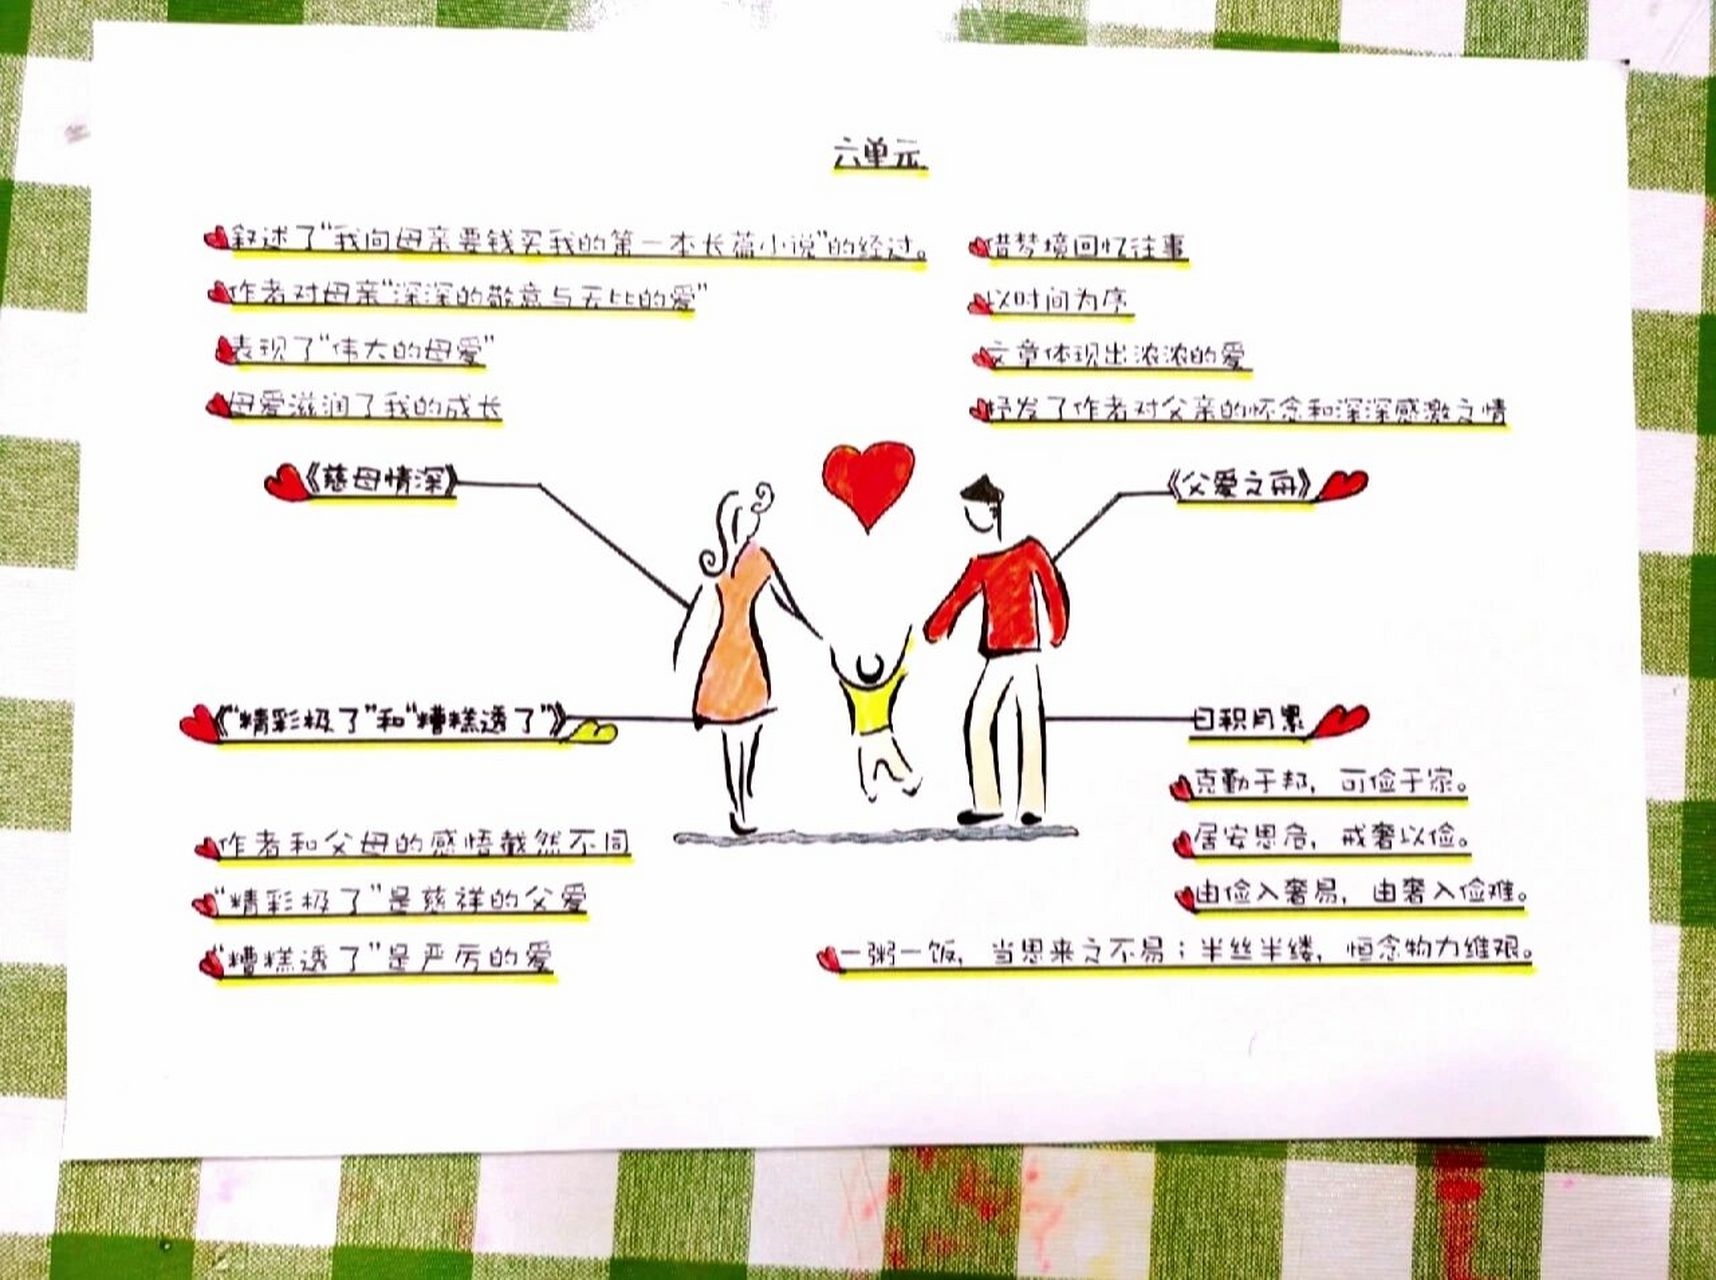 六单元
叙述了“我向母亲要钱买我的第一本长篇小说”的经过。
作者对母亲“深深的敬意与无比的爱”
表现了“伟大的母爱”
母爱滋润了我的成长
《慈母情深》
借梦境回忆往事
以时间为序
文章体现出浓浓的爱
抒发了作者对父亲的怀念和深深感激之情
《父爱之舟》
《“精彩极了”和“糟糕透了”》
作者和父母的感悟截然不同
“精彩极了”是慈祥的父爱
“糟糕透了”是严厉的爱
日积月累
克勤于邦，可俭于家。
居安思危，戒奢以俭。
由俭入奢易，由奢入俭难。
一粥一饭，当思来之不易；半丝半缕，恒念物力维艰。